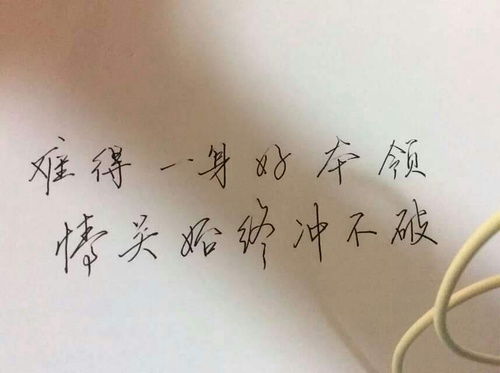 难得一身好本领
情关始终冲不破